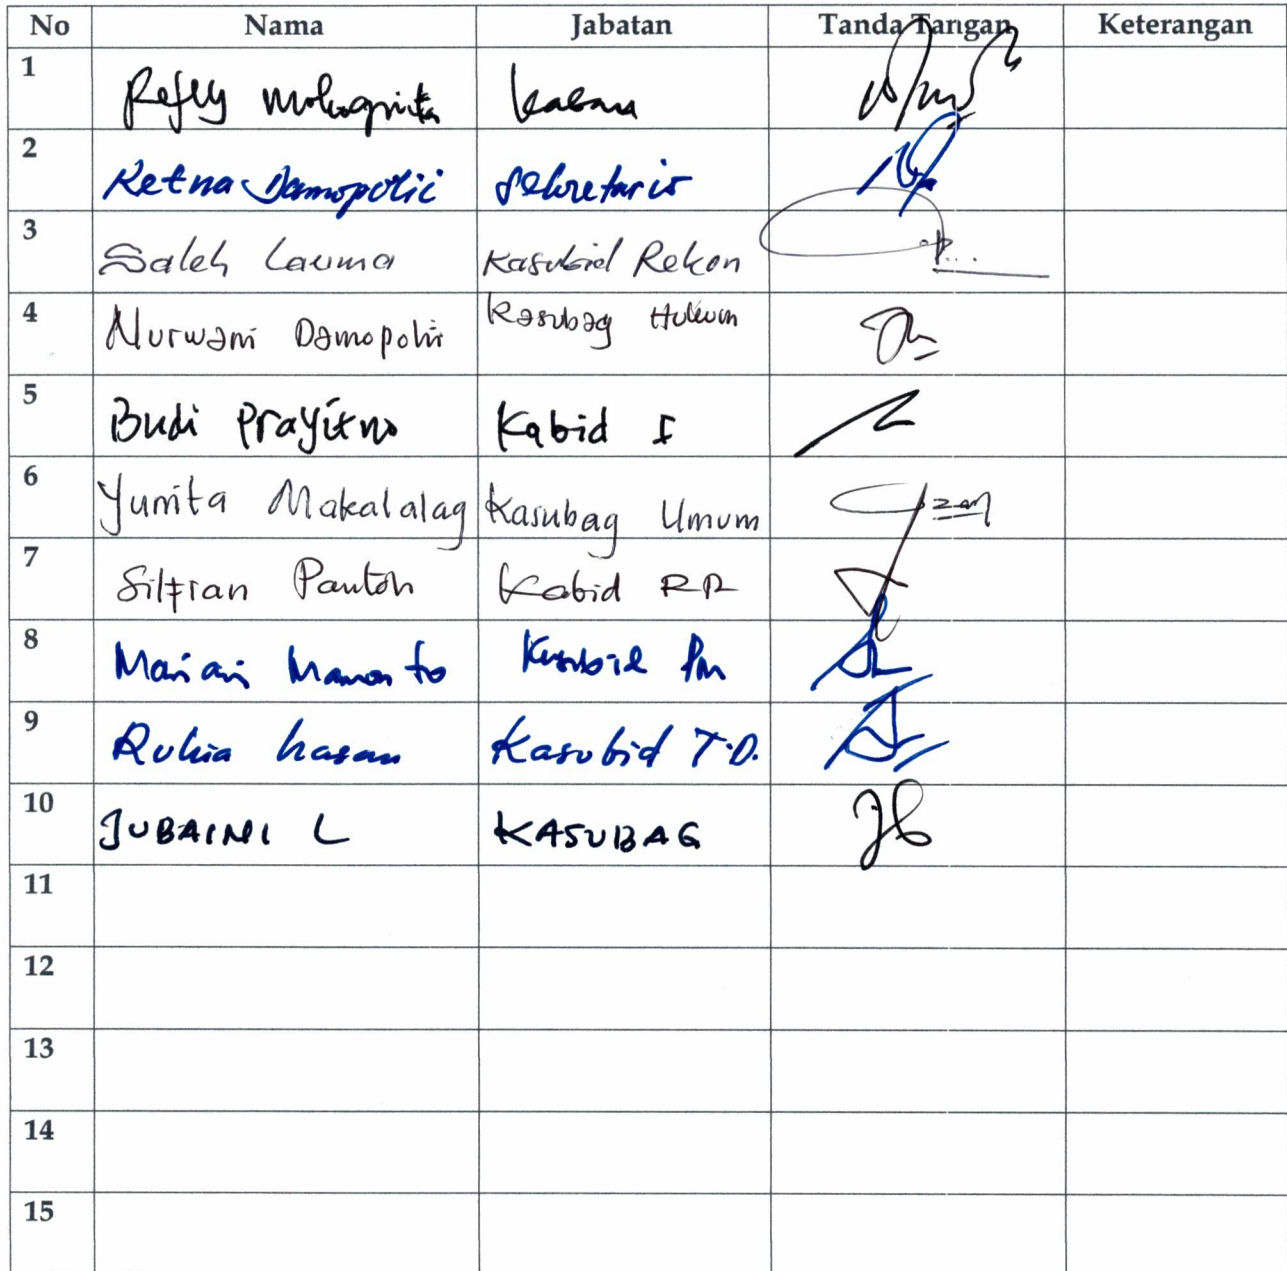 No Nama Jabatan Tanda Tangan Keterangan
1 Refly Mokoginta Kaban
2 Retna Damopolii Sekretaris
3 Saleh Lauma Kasubid Rekon
4 Nurwani Damopolii Kasubag Hukum
5 Budi Prayitno Kabid I
6 Yunita Makalalag Kasubag Umum
7 Silfian Pantoh Kabid RR
8 Mamonto Kasubid
9 Rukia hasan Kasubid T.D.
10 JUBAINI L KASUBAG
11
12
13
14
15